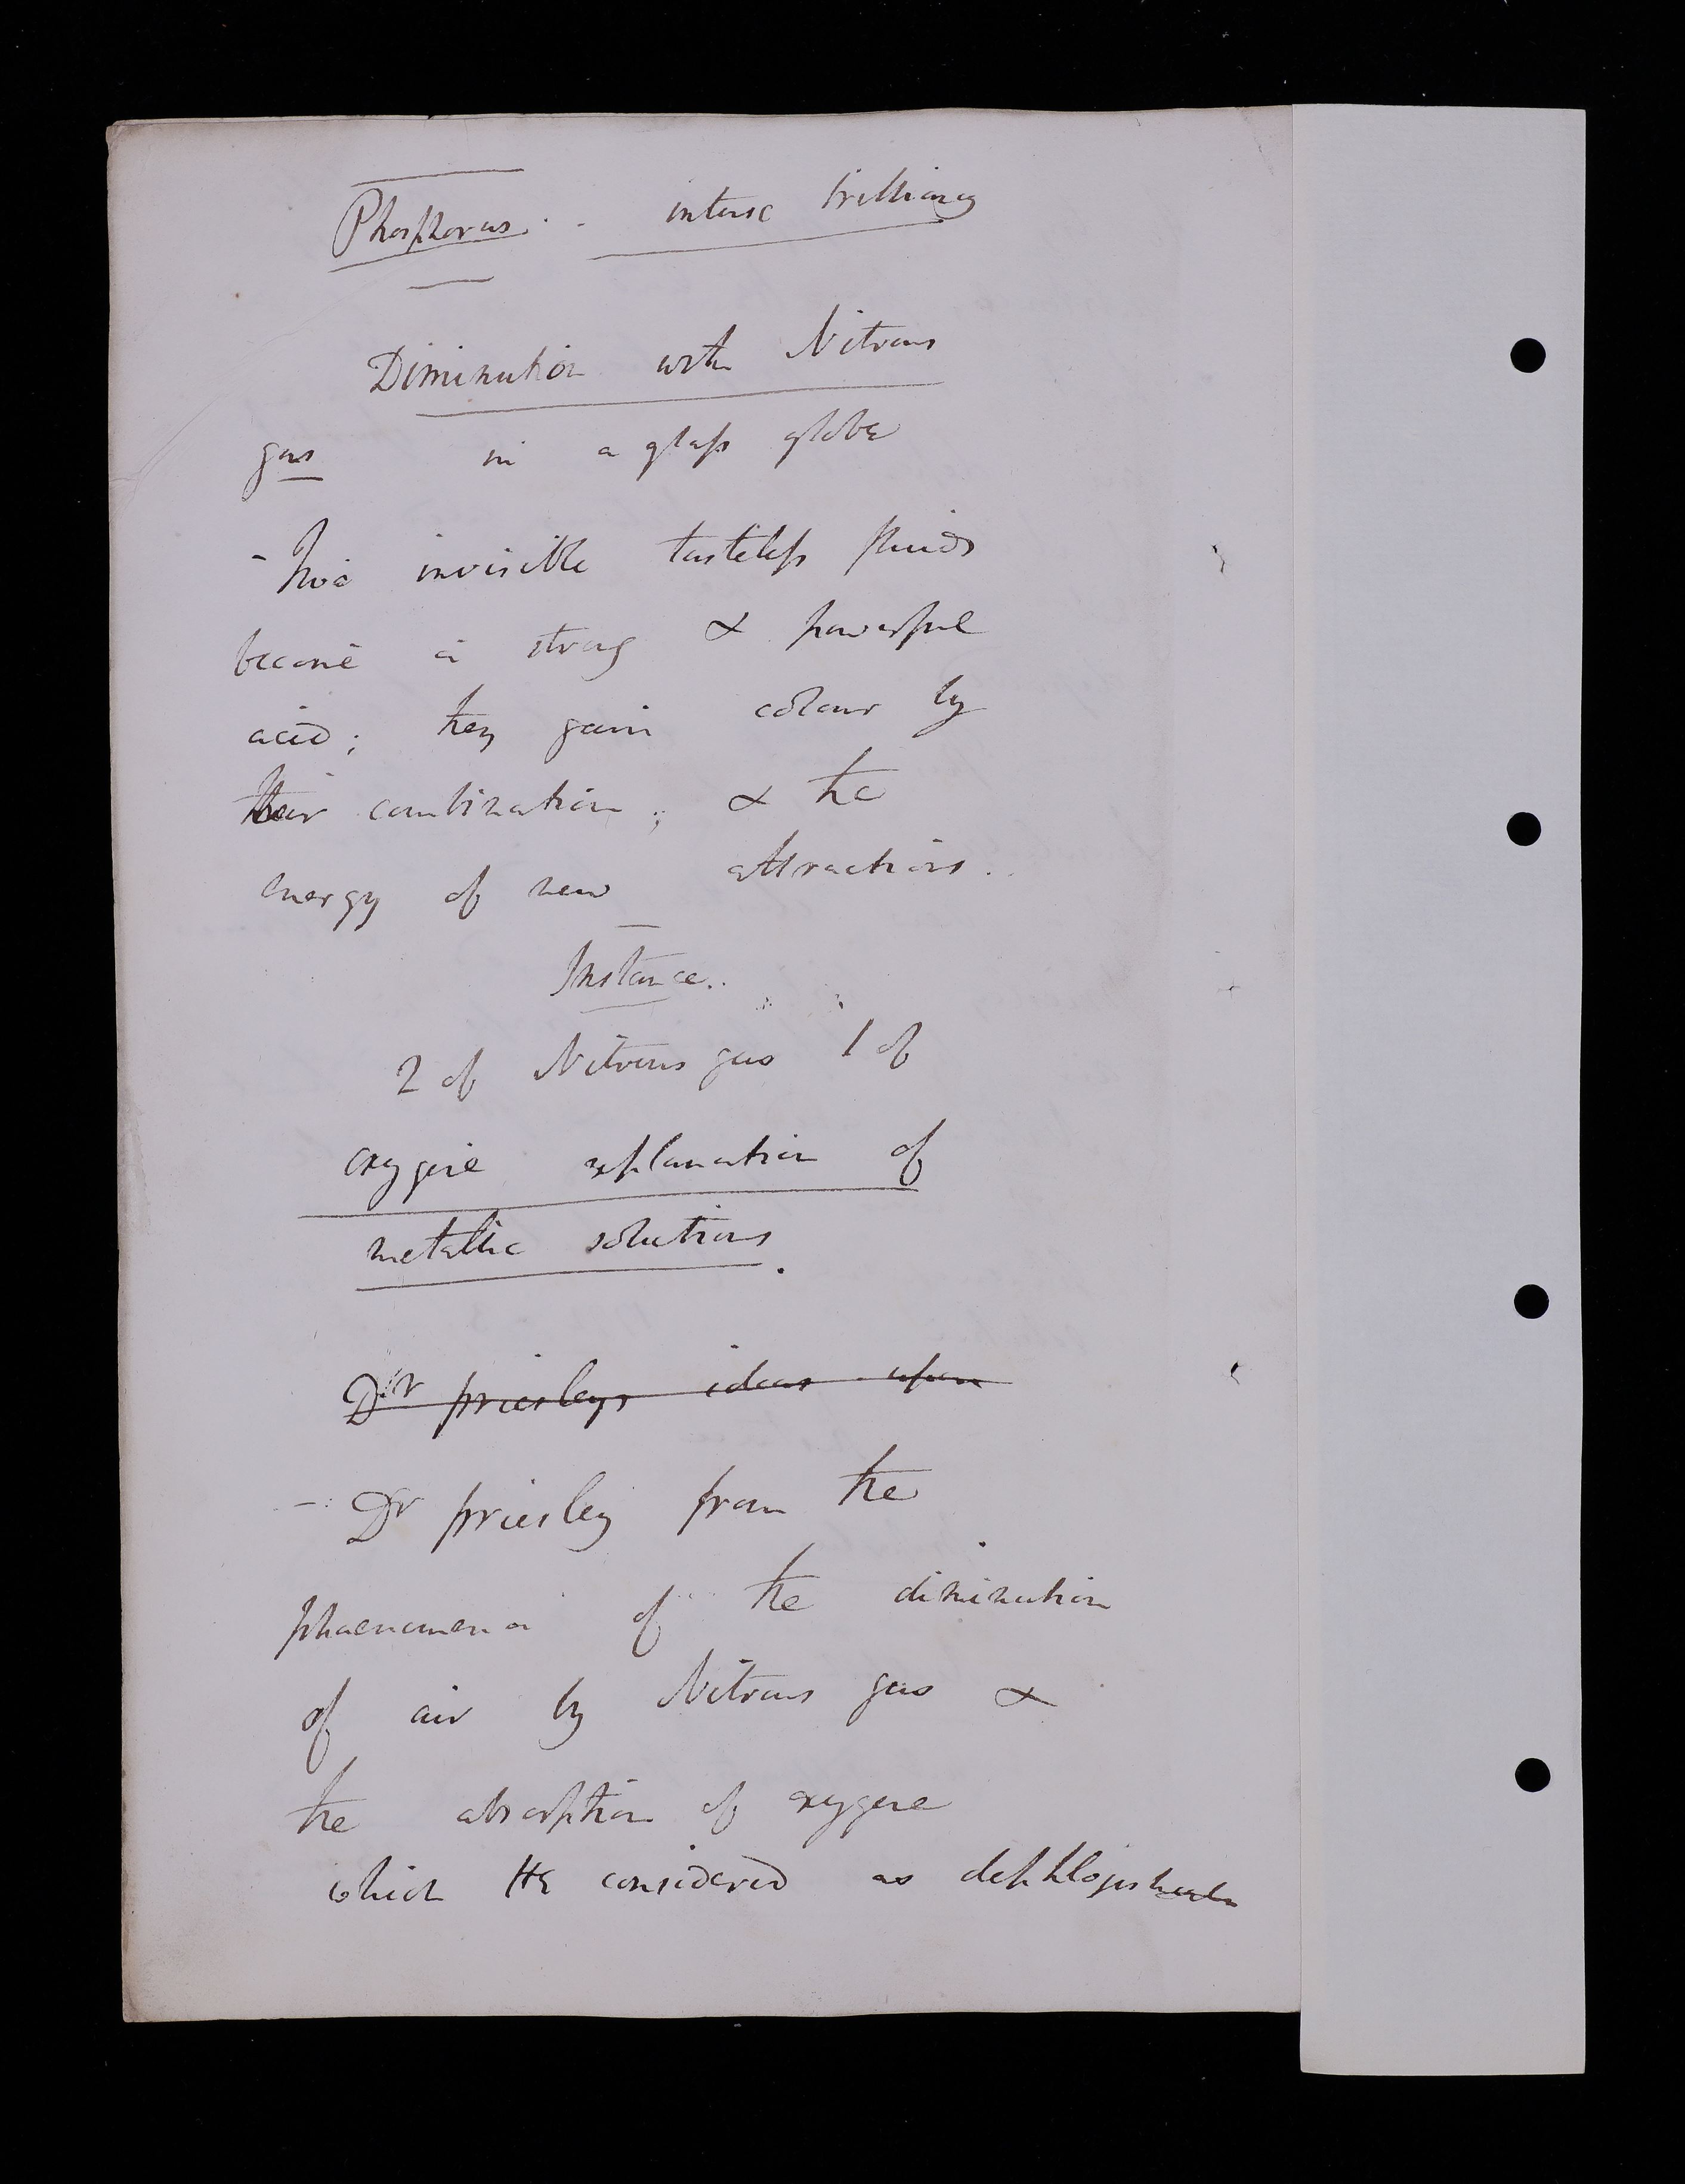 Phosphorus. - intense brilliancy
Diminution with Nitrous
gas in a glass globe
- Two invisible tasteless fluids
become a strong & powerful
acid; they gain colour by
their combination; & the
energy of new attractions.
Instance..
2 of Nitrous gas 1 of
oxygene explanation of
metallic solutions.
Dr priesleys ideas upon
- Dr priesley from the
phaenomena of the diminution
of air by Nitrous gas &
the absorption of oxygene
which He considered as